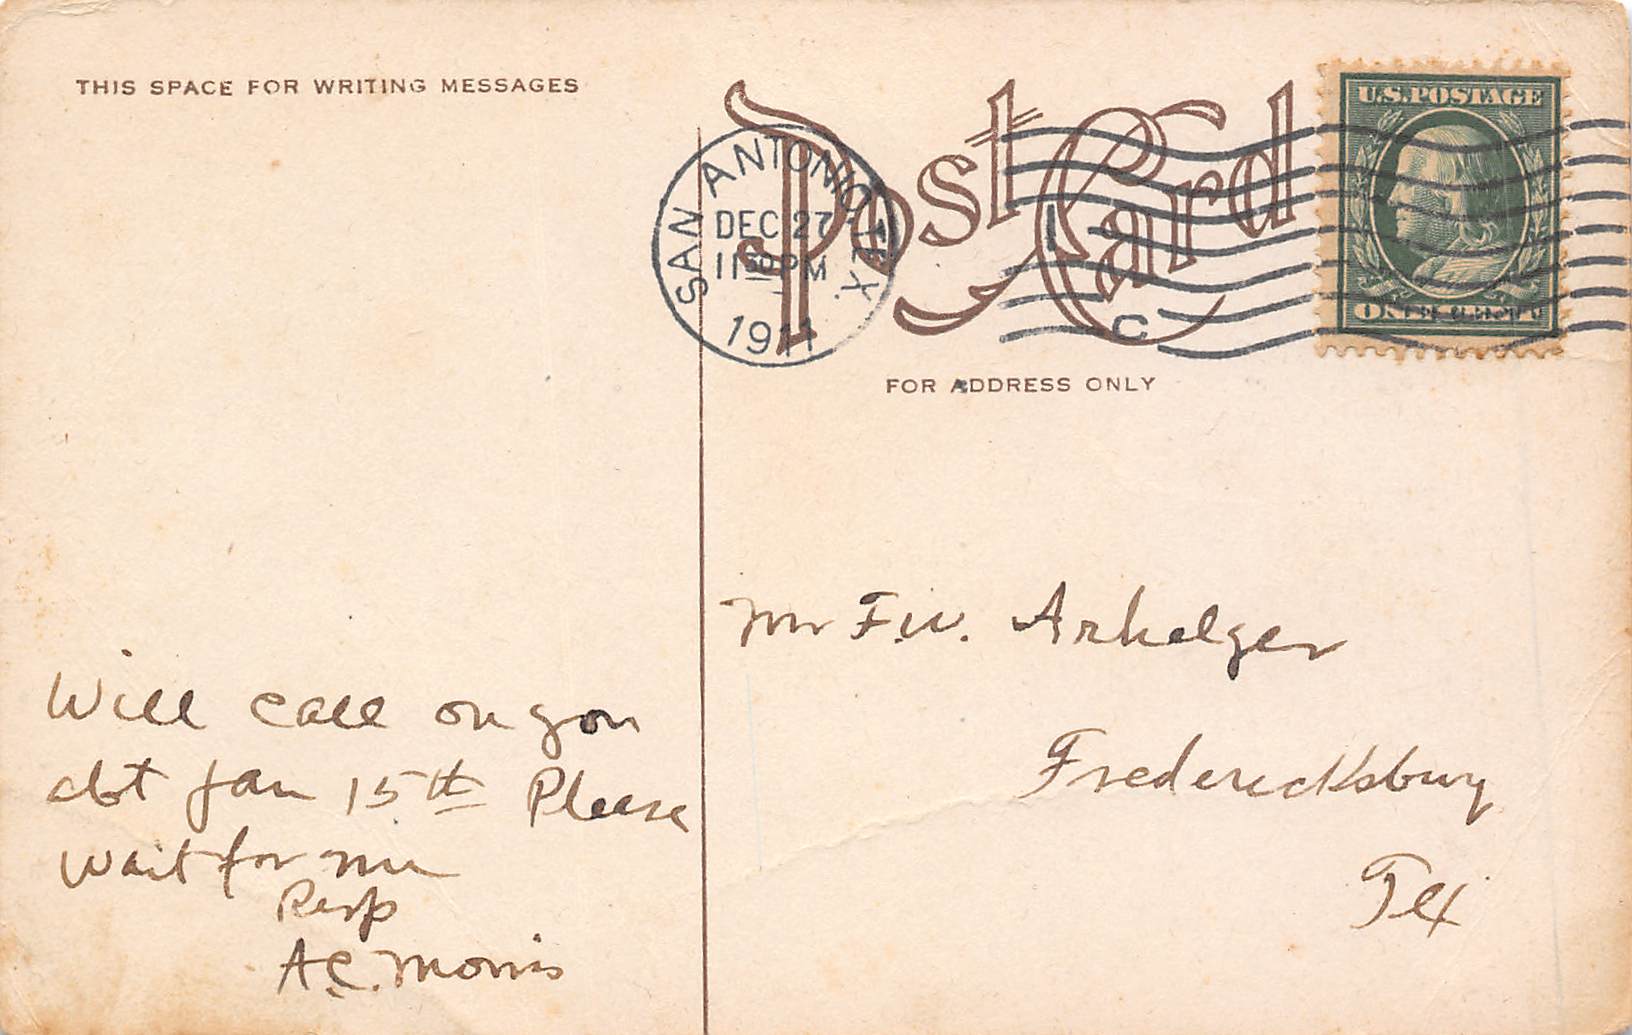 THIS SPACE FOR WRITING MESSAGES
Post Card
SAN ANTONIO, TEX.
DEC 27
11 30 PM
1911
C
U.S. POSTAGE
ONE CENT
FOR ADDRESS ONLY
Mr F.W. Arhelger
Fredericksburg
Tex
Will call on you
abt Jan 15th Please
wait for me
Resp
A.C. Morris